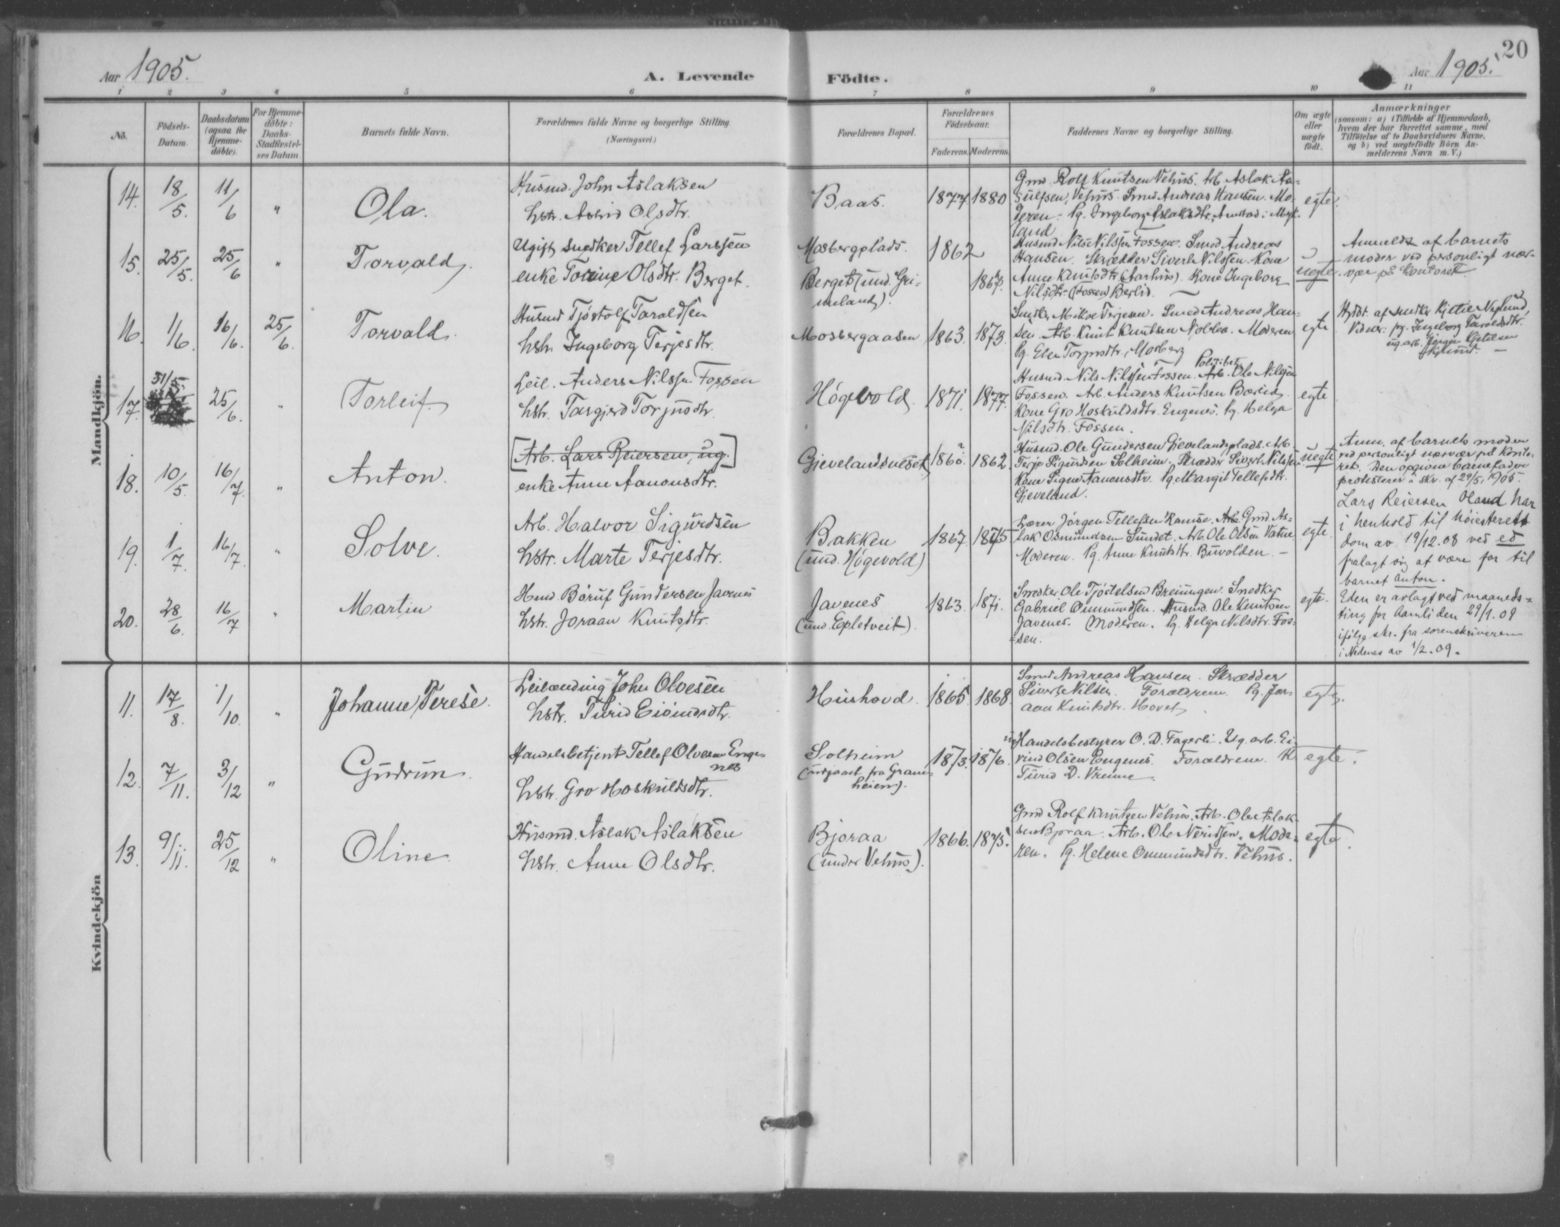 Aar 1905.
A. Levende Födte.
Aar 1905.
20
1 2 3 4 5 6 7 8 9 10 11
No.
Födsels-
Datum.
Daabsdatum
(ogsaa for
Hjemme-
döbte).
For Hjemme-
döbte:
Daabs-
Stadfæstel-
ses Datum.
Barnets fulde Navn.
Forældrenes fulde Navne og borgerlige Stilling
(Næringsvei.)
Forældrenes Bopæl.
Forældrenes
Födselsaar.
Faderens. Moderens.
Faddernes Navne og borgerlige Stilling.
Om ægte
eller
uægte
födt.
Anmærkninger
(saasom: a) i Tilfælde af Hjemmedaab,
hvem der har forrettet samme, med
Tilföielse af to Daabsvidners Navne,
og b) ved uægtefödte Börn An-
melderens Navn m. V.)
Mandkjön.
14. 18/5. 11/6 " Ola.
Husmd. John Aslaksen
hstr. Astrid Olsdtr.
Baas. 1877 1880
Gmd. Rolf Knutsen Vehus. Arb. Aslak Aa-
sulfsen, Vehus. Smed Andreas Hansen. Mo-
deren. Pg. Ingeborg Aslaksdtr.
egte.
15. 25/5. 25/6 " Torvald.
Ugift snedker Tellef Larssen
enke Torine Olsdtr. Berget.
Mosbergplads.
Berget (und. Gri-
meland).
1862 1867.
Husmd Nils Nilssen Fossen. Smed Andreas
Hansen. Skrædder Siverk Nilssen. Kone
Anne Knutsdtr. Kone Ingeborg
Nilsdtr. Fossen
uegte.
Anmeldt af barnets
moder ved personligt nær-
vær på kontoret
16. 1/6. 16/6. 25/6. Torvald.
Husmd Tjöstolf Taraldsen
hstr. Ingeborg Terjesdtr.
Mosbergaasen 1863. 1873.
Smed Andreas Han-
sen. Arb. Knut Knutsen. Moderen
Pg. Else Torjusdtr. Mosberg
egte
Hjdbt. af snedker Kjettil Neslund,
Vidner: Pg. Ingeborg Taraldsdtr.
og arb. Jörgen Kjetilsen
17. 31/5. 25/6. " Torleif.
Leil. Anders Nilssen Fossen
hstr. Torgjerd Torjusdtr.
Högevold. 1871. 1877.
Husmd Nils Nilssen Fossen. Arb. Ole Nilssen
Fossen. Arb. Anders Knutsen
Kone Gro Hoskuldsdtr. Engenes. Pg. Helga
Nilsdtr. Fossen.
egte
18. 10/5. 16/7. " Anton.
[Arb. Lars Reiersen, ug.]
enke Anne Aanonsdtr.
Gjevelandsneset 1860. 1862.
Husmd. Ole Gundersen Gjevelandsplads. Arb.
Terje Sigurdsen Solheim. Skrædder Siverk Nilssen.
Kone Signe Aanonsdtr. Pg. Margit Tellefsdtr.
Gjeveland.
uegte
Anm. af barnets moder
ved personligt nærvær på konto-
ret. Den opgivne barnefader
protesterer i skr. af 29/5. 1905.
Lars Reiersen Öland har
i henhold til höiesteretts
dom av 19/12.08 ved ed
fralagt sig at være far til
barnet Anton.
Eden er avlagt ved maaneds-
ting for Aamli den 29/1.09
ifölge skr. fra sorenskriveren
i Nedenes av 1/2.09.
19. 1/7. 16/7. " Solve.
Arb. Halvor Sigurdsen
hstr. Marte Terjesdtr.
Bakken
(und. Högevold)
1867. 1875
Lærer Jörgen Tellefsen Ramse. Arb. Gmd. As-
lak Osmundsen Sundet. Arb. Ole Olsen Vatne
Moderen. Pg. Anne Knutsdtr. Buvolden.
egte.
20. 28/6. 16/7 " Martin
Hmd. Böruf Gundersen Javenes
hstr. Joraan Knutsdtr.
Javenes
(und. Epletveit).
1863. 1871.
Snedker Ole Tjöstelsen Breiungen. Snedker
Gabriel Ommundsen. Husmd. Ole Knutsen
Javenes. Moderen. Pg. Helga Nilsdtr. Fos-
sen.
egte.
Kvindekjön
11. 17/8. 1/10 " Johanne Terese.
Leilænding John Olvesen
hstr. Turid Eivindsdtr.
Heishovd. 1865. 1868.
Smed Andreas Hansen. Skrædder
Siverk Nilsen. Forældrene. Pg. Jor-
aan Knutsdtr. Hovet.
egte.
12. 7/11. 3/12 " Gudrun.
Handelsbetjent Tellef Olvesen Enge-
nes
hstr. Gro Hoskuldsdtr.
Solheim
(udgaaet fra Gran-
heien).
1873. 1876.
Handelsbestyrer O. D. Fagerli. Ug. arb. Ei-
vind Olsen Engenes. Forældrene. K
Turid D. Vrenne
egte.
13. 9/11. 25/12 " Oline.
Husmd. Aslak Aslaksen
hstr. Anne Olsdtr.
Bjoraa
(under Vehus).
1866. 1875.
Gmd. Rolf Knutsen Vehus. Arb. Ole Aslak-
sen Bjoraa. Arb. Ole Nerisen. Mode-
ren. Pg. Helene Ommundsdtr. Vehus.
egte.